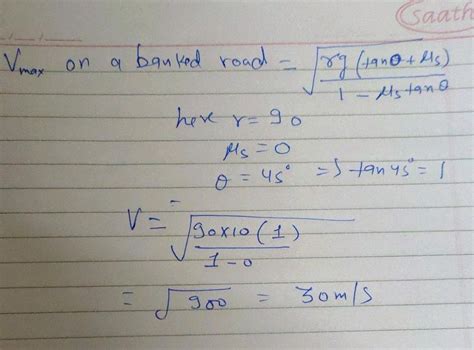 saath
V max on a banked road = √ rg (tanθ + μs) / 1 - μs tanθ
here r = 90
μs = 0
θ = 45° => tan 45° = 1
V = √ 90x10 (1) / 1-0
= √ 900 = 30 m/s